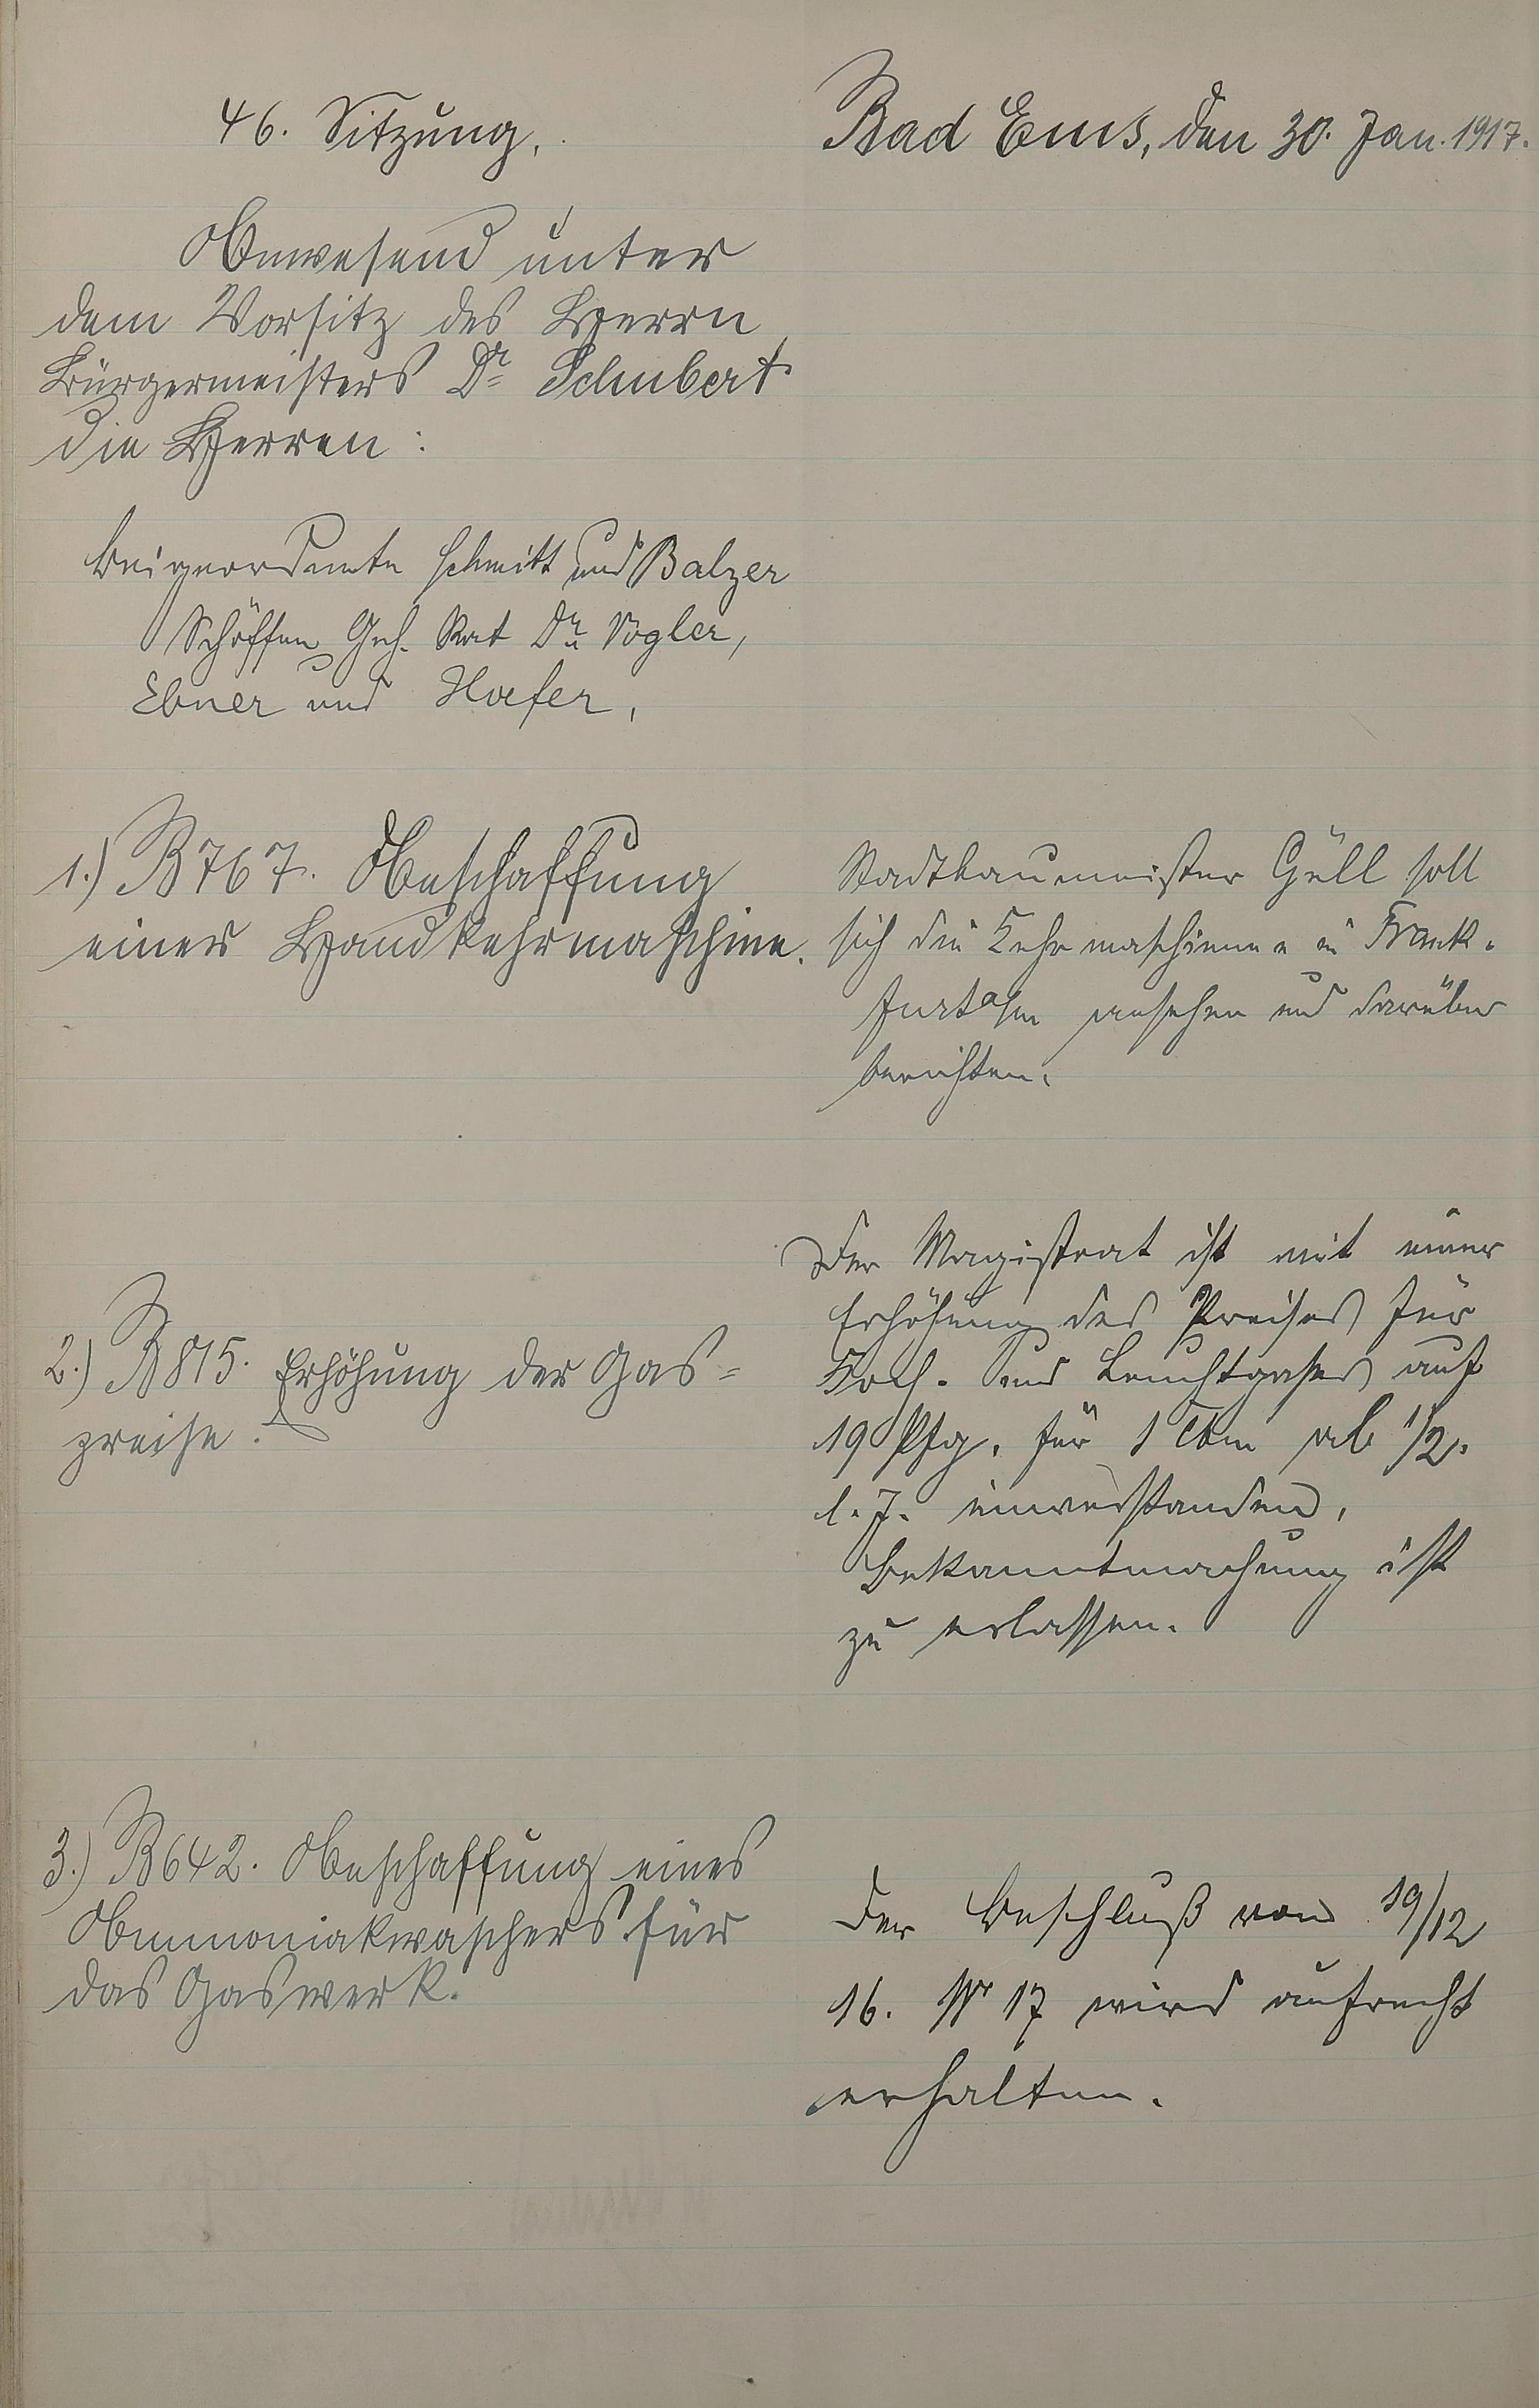 46. Sitzung.
Bad Ems, den 30. Jan. 1917.
Anwesend unter
dem Vorsitz des Herrn
Bürgermeisters Dr Schubert
die Herren:
Beigeordnete Schmitt und Balzer
Schöffen Geh. Rat Dr. Vogler,
Ebner und Hofer.
1.) B 767. Beschaffung
einer Handkehrmaschine.
Stadtbaumeister Güll soll
sich die Kehrmaschinen in Frank-
furt a/m ansehen und darüber
berichten.
2.) B 815. Erhöhung der Gas-
preise.
Der Magistrat ist mit einer
Erhöhung des Preises für
Koch- und Leuchtgases auf
19 Pfg. für 1 cbm ab 1/2.
l. J. einverstanden.
Bekanntmachung ist
zu erlassen.
3.) B 642. Beschaffung eines
Ammoniakwaschers für
das Gaswerk.
Der Beschluß vom 19/12
16. Nr 17 wird aufrecht
erhalten.